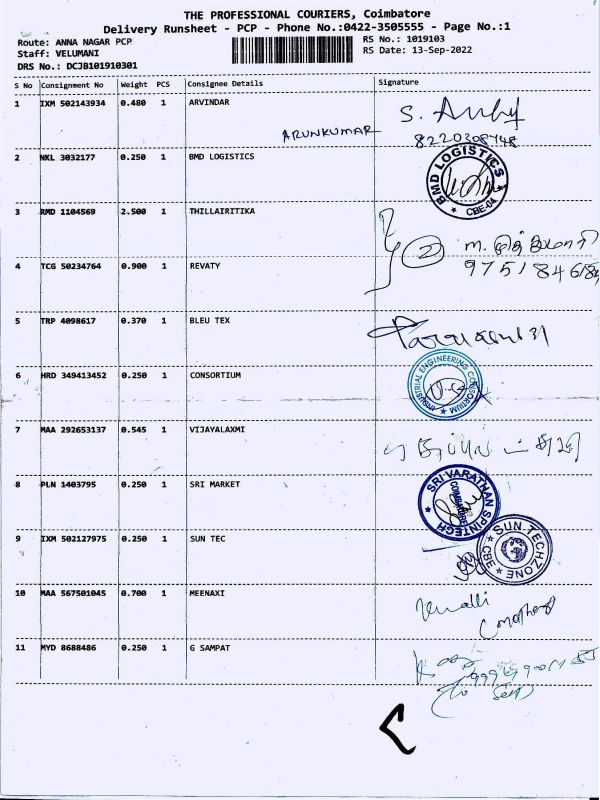 THE PROFESSIONAL COURIERS, Coimbatore
Delivery Runsheet - PCP - Phone No.:0422-3505555 - Page No.:1
Route: ANNA NAGAR PCP
RS No.: 1019103
Staff: VELUMANI
RS Date: 13-Sep-2022
DRS No.: DCJB101910301
S No Consignment No Weight PCS Consignee Details Signature
1 IXM 502143934 0.480 1 ARVINDAR
ARUNKUMAR
8220308748
2 NKL 3032177 0.250 1 BMD LOGISTICS
BMD LOGISTICS
★ CBE-04 ★
3 RMD 1104569 2.500 1 THILLAIRITIKA
2
4 TCG 50234764 0.900 1 REVATY
5 TRP 4098617 0.370 1 BLEU TEX
6 HRD 349413452 0.250 1 CONSORTIUM
INDUSTRIAL ENGINEERING CONSORTIUM ★
7 MAA 292653137 0.545 1 VIJAYALAXMI
8 PLN 1403795 0.250 1 SRI MARKET
SRI VARATHAN SPINTECH
COIMBATORE
9 IXM 502127975 0.250 1 SUN TEC
SUN TECHZONE
★ CBE ★
10 MAA 567501045 0.700 1 MEENAXI
11 MYD 8688486 0.250 1 G SAMPAT